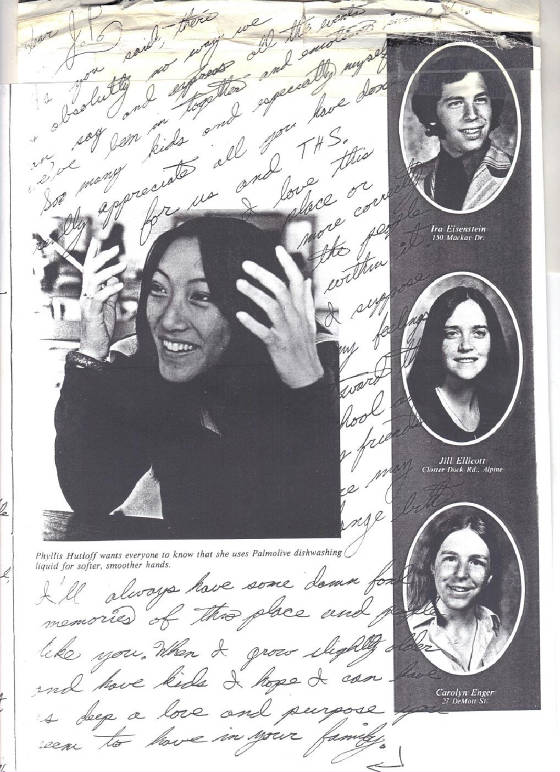 you said, there
absolutly no way we
say and express all the events
been in together and emotions
Soo many kids and especially myself
really appreciate all you have done
for us and THS.
I love this
place or
more correctly
the people
within it
I suppose
my feelings
toward
school
friends
may
change but
Ira Eisenstein
150 Mackay Dr.
Jill Ellicott
Closter Dock Rd., Alpine
Carolyn Enger
27 DeMott St.
Phyllis Hutloff wants everyone to know that she uses Palmolive dishwashing
liquid for softer, smoother hands.
I'll always have some damn fond
memories of this place and people
like you. When I grow slightly older
and have kids I hope I can have
as deep a love and purpose you
seem to have in your family.